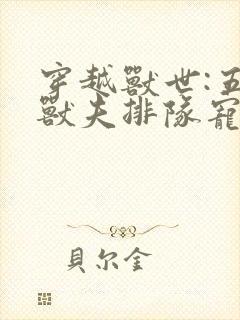 穿越獸世:五
獸夫排隊寵
貝尔金